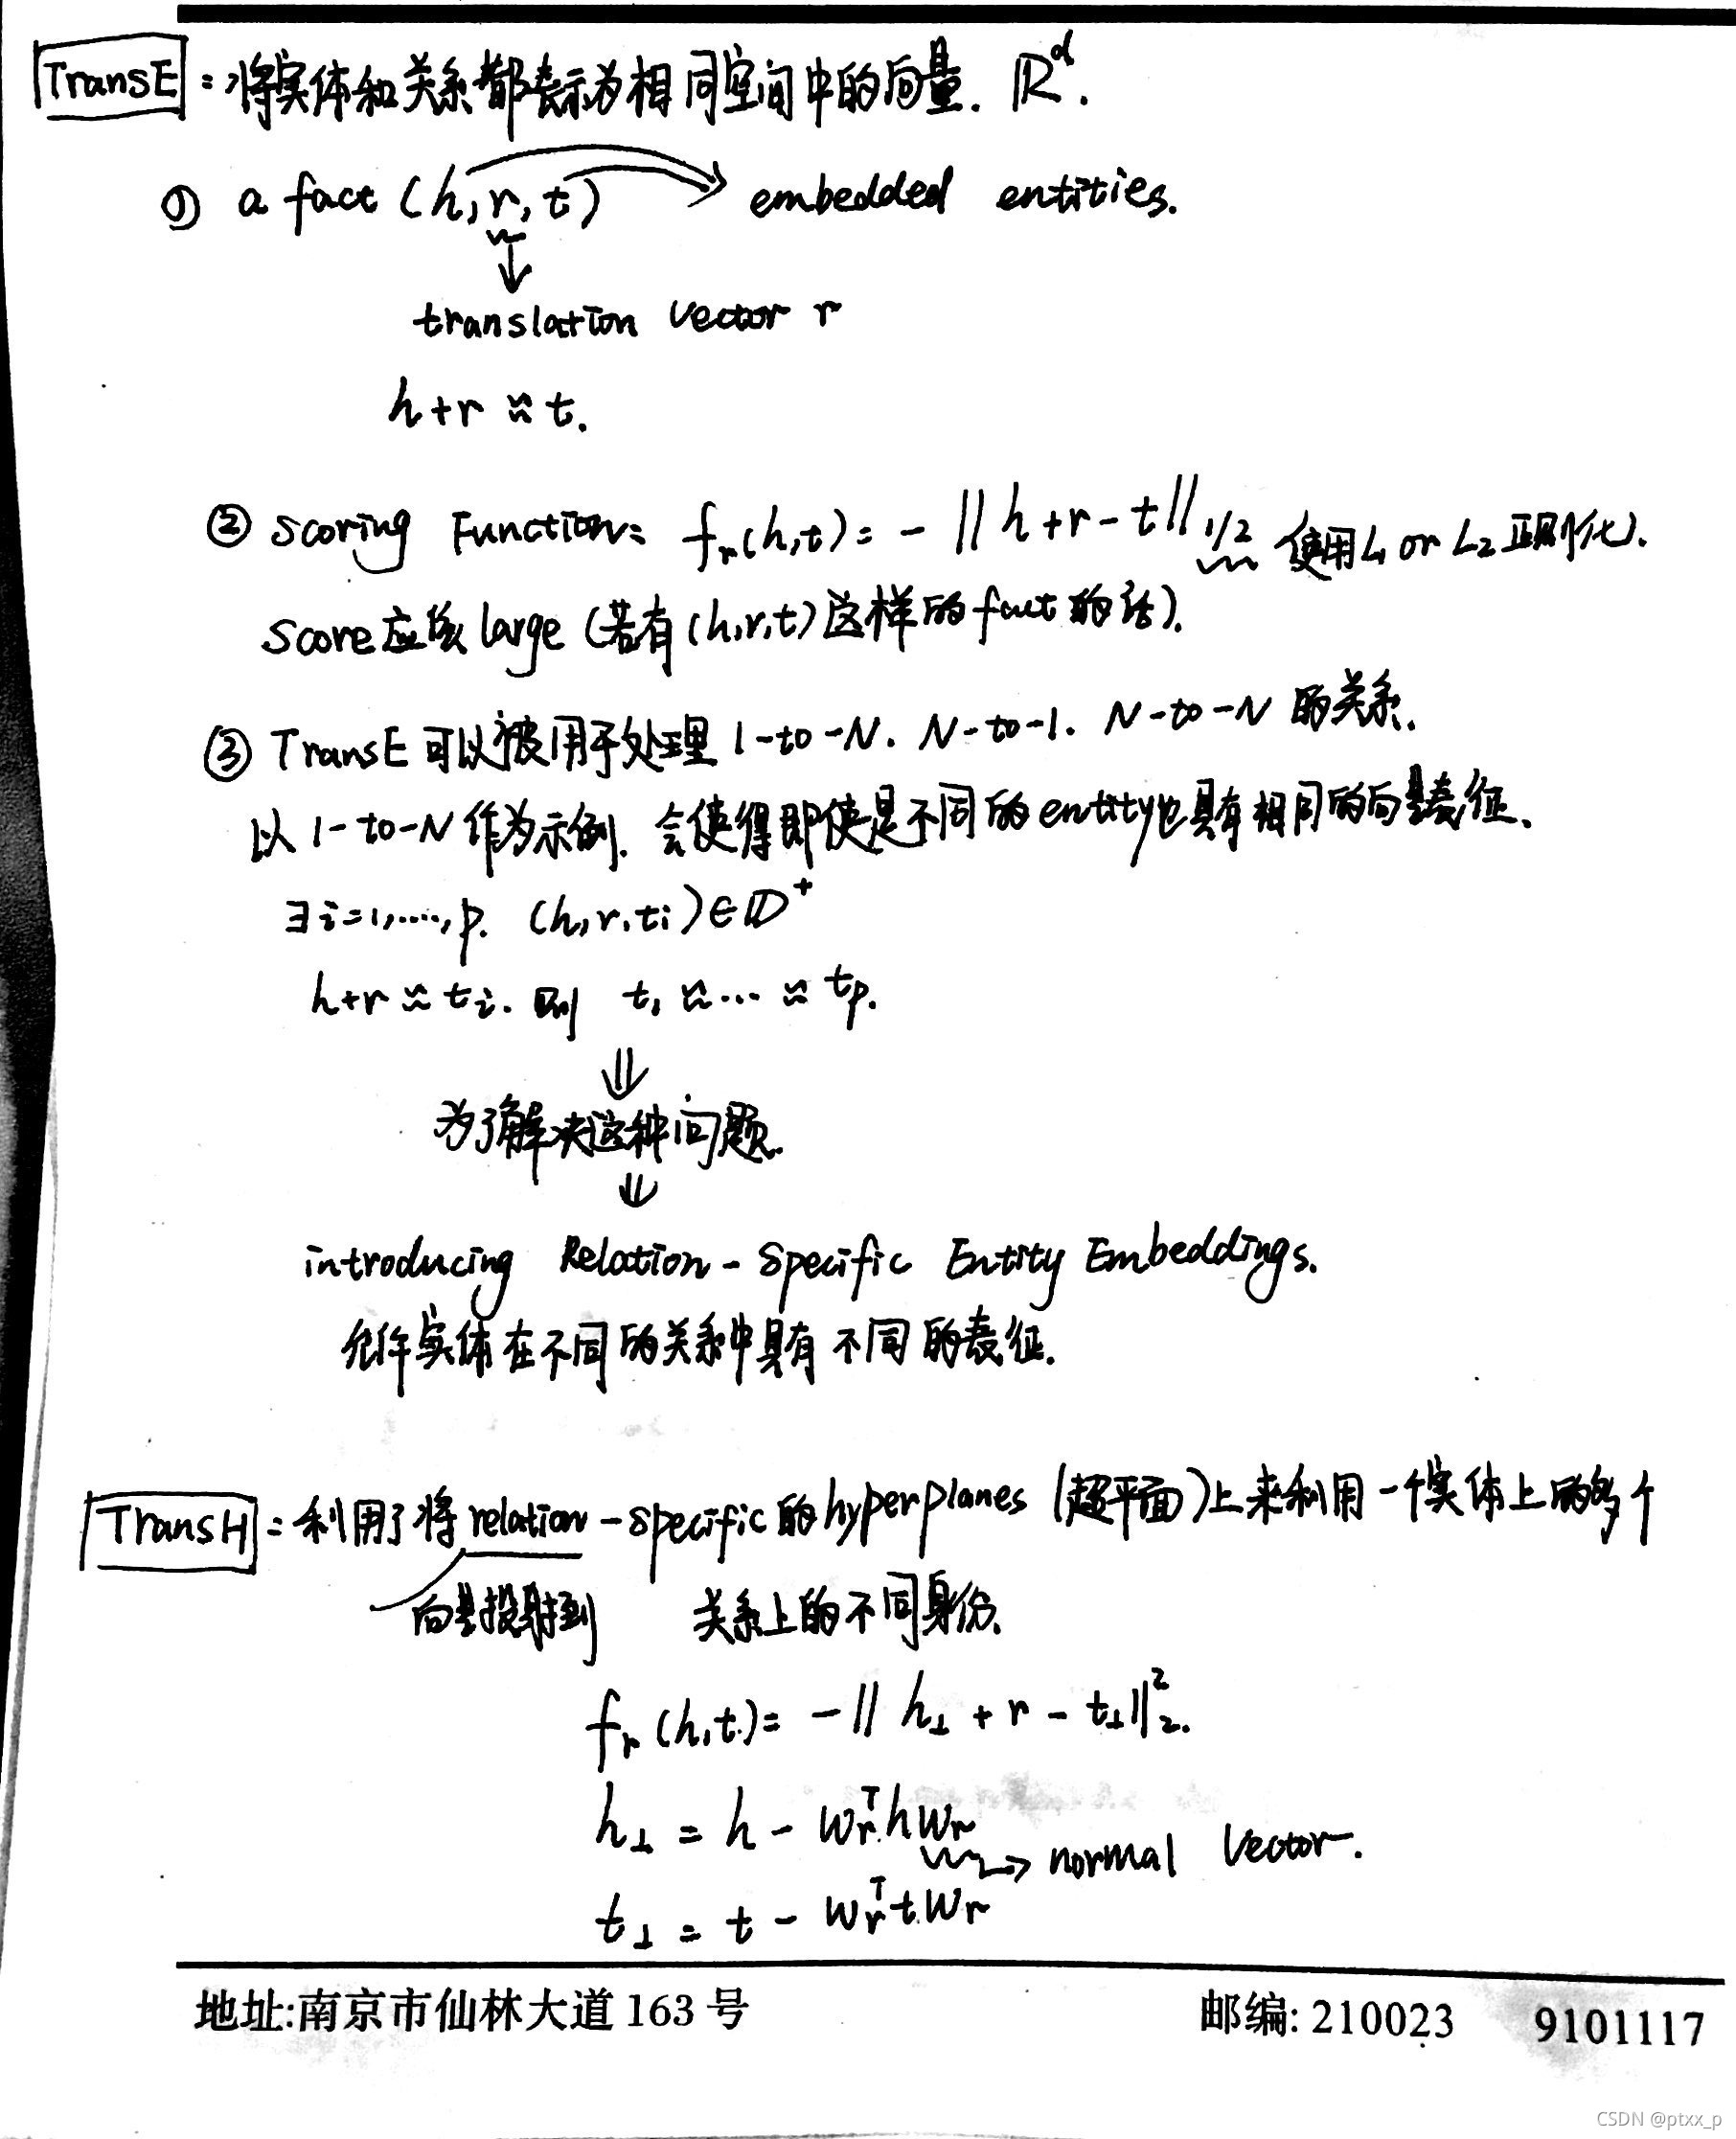 TransE：将实体和关系都表示为相同空间中的向量. ℝᵈ.
① a fact (h, r, t) → embedded entities.
↓
translation vector r
h+r ≈ t.
② Scoring Function: fᵣ(h,t) = - ‖h+r-t‖₁/₂ 使用L₁ or L₂正则化).
Score应该large (若有(h,r,t)这样的fact的话).
③ TransE可以被用于处理 1-to-N. N-to-1. N-to-N 的关系.
以1-to-N作为示例. 会使得即使是不同的entity也具有相同的向量表征.
∃i=1,……,p. (h,r,tᵢ)∈𝔻⁺
h+r ≈ tᵢ. 则 t₁ ≈ … ≈ tₚ.
⇓
为了解决这种问题.
⇓
introducing Relation-Specific Entity Embeddings.
允许实体在不同的关系中具有不同的表征.
TransH：利用了将relation-specific的hyperplanes (超平面)上来利用一个实体上的多个
向量投射到 关系上的不同身份.
fᵣ(h,t) = -‖h⊥ + r - t⊥‖₂².
h⊥ = h - wᵣᵀhwᵣ → normal vector.
t⊥ = t - wᵣᵀtwᵣ
地址:南京市仙林大道163号 邮编: 210023 9101117
CSDN @ptxx_p